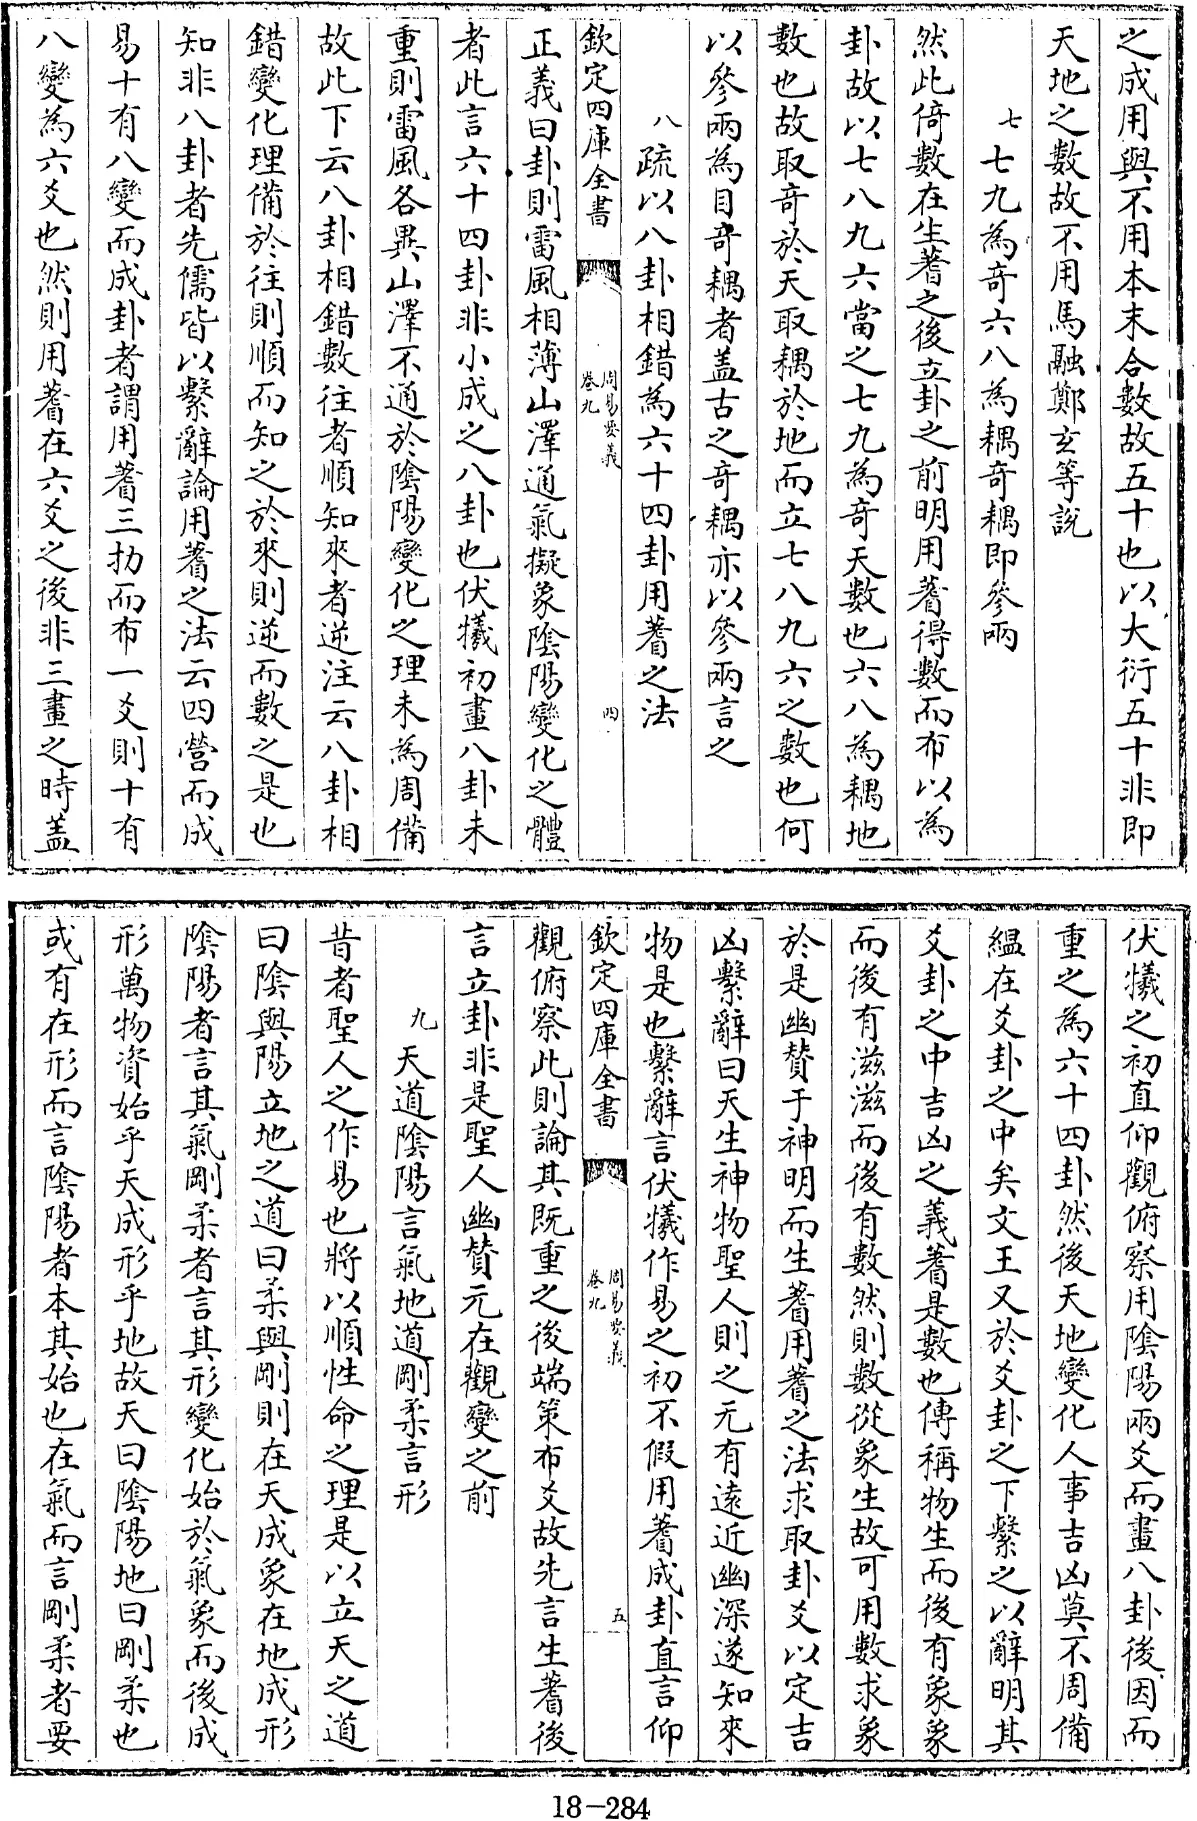 之成用與不用本末合數故五十也以大衍五十非即
天地之數故不用馬融鄭玄等說
七七九為奇六八為耦奇耦即參兩
然此倚數在生蓍之後立卦之前明用蓍得數而布以為
卦故以七八九六當之七九為奇天數也六八為耦地
數也故取奇於天取耦於地而立七八九六之數也何
以參兩為目奇耦者盖古之奇耦亦以參兩言之
八疏以八卦相錯為六十四卦用蓍之法
欽定四庫全書
周易要義
卷九
四
正義曰卦則雷風相薄山澤通氣擬象陰陽變化之體
者此言六十四卦非小成之八卦也伏犧初畫八卦未
重則雷風各異山澤不通於陰陽變化之理未為周備
故此下云八卦相錯數往者順知來者逆注云八卦相
錯變化理備於往則順而知之於來則逆而數之是也
知非八卦者先儒皆以繫辭論用蓍之法云四營而成
易十有八變而成卦者謂用蓍三扐而布一爻則十有
八變為六爻也然則用蓍在六爻之後非三畫之時盖
伏犧之初直仰觀俯察用陰陽兩爻而畫八卦後因而
重之為六十四卦然後天地變化人事吉凶莫不周備
縕在爻卦之中矣文王又於爻卦之下繫之以辭明其
爻卦之中吉凶之義蓍是數也傳稱物生而後有象象
而後有滋滋而後有數然則數從象生故可用數求象
於是幽贊于神明而生蓍用蓍之法求取卦爻以定吉
凶繫辭曰天生神物聖人則之无有遠近幽深遂知來
物是也繫辭言伏犧作易之初不假用蓍成卦直言仰
欽定四庫全書
周易要義
卷九
五
觀俯察此則論其既重之後端策布爻故先言生蓍後
言立卦非是聖人幽贊元在觀變之前
九天道陰陽言氣地道剛柔言形
昔者聖人之作易也將以順性命之理是以立天之道
曰陰與陽立地之道曰柔與剛則在天成象在地成形
陰陽者言其氣剛柔者言其形變化始於氣象而後成
形萬物資始乎天成形乎地故天曰陰陽地曰剛柔也
或有在形而言陰陽者本其始也在氣而言剛柔者要
18-284